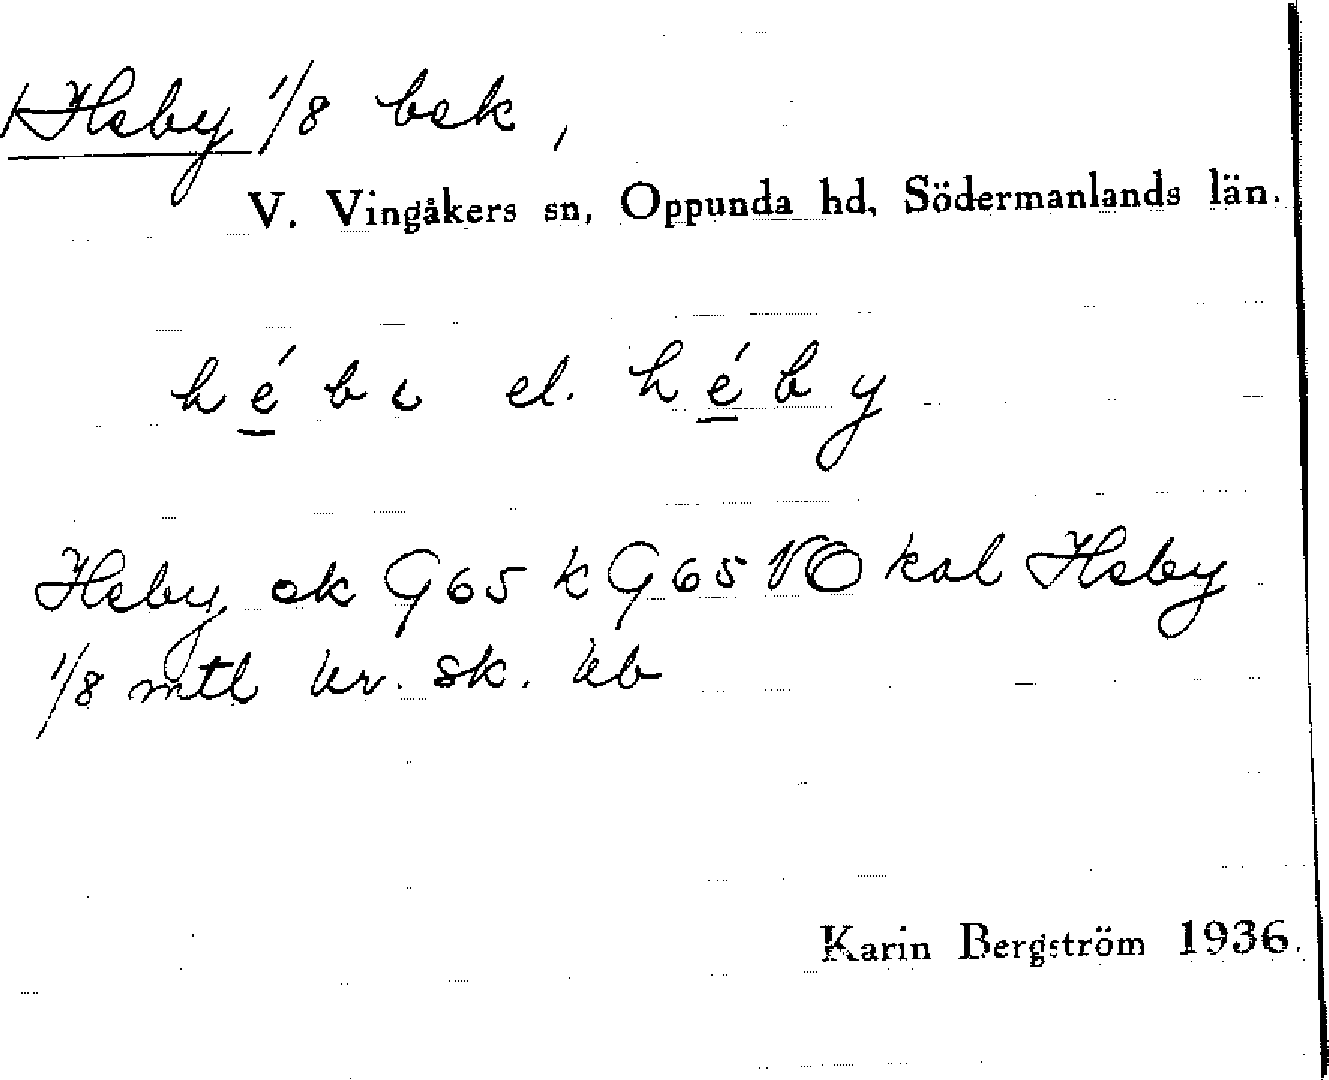 Heby 1/8 bek,
V. Vingåkers sn, Oppunda hd, Södermanlands län.
hé̱bɩ el. hé̱by
Heby ek G65 k G65 VO kal Heby
1/8 mtl kr. sk. kb
Karin Bergström 1936.